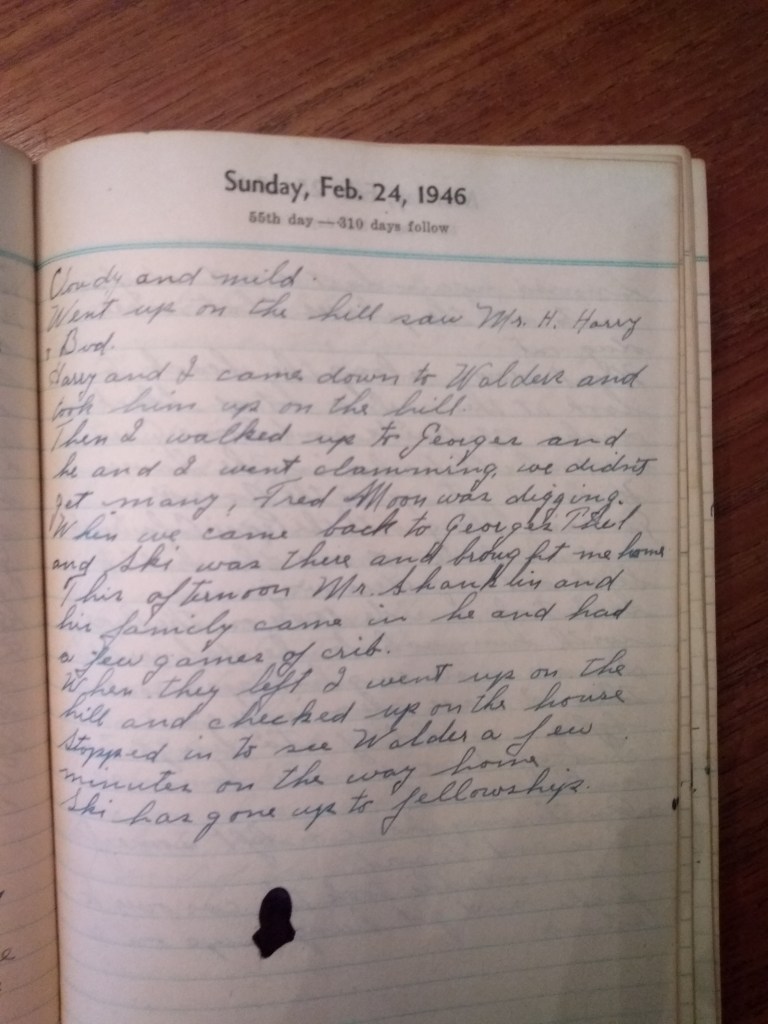 Sunday, Feb. 24, 1946
55th day—310 days follow
Cloudy and mild.
Went up on the hill saw Mr. H. Harry
& Bud.
Harry and I came down to Walders and
took him up on the hill.
Then I walked up to Georges and
he and I went clamming, we didn't
get many, Fred Moon was digging.
When we came back to Georges
and Ski was there and brought me home
This afternoon Mr. Shanklin and
his family came in he and had
a few games of crib.
When they left I went up on the
hill and checked up on the house
stopped in to see Walder a few
minutes on the way home
Ski has gone up to fellowship.